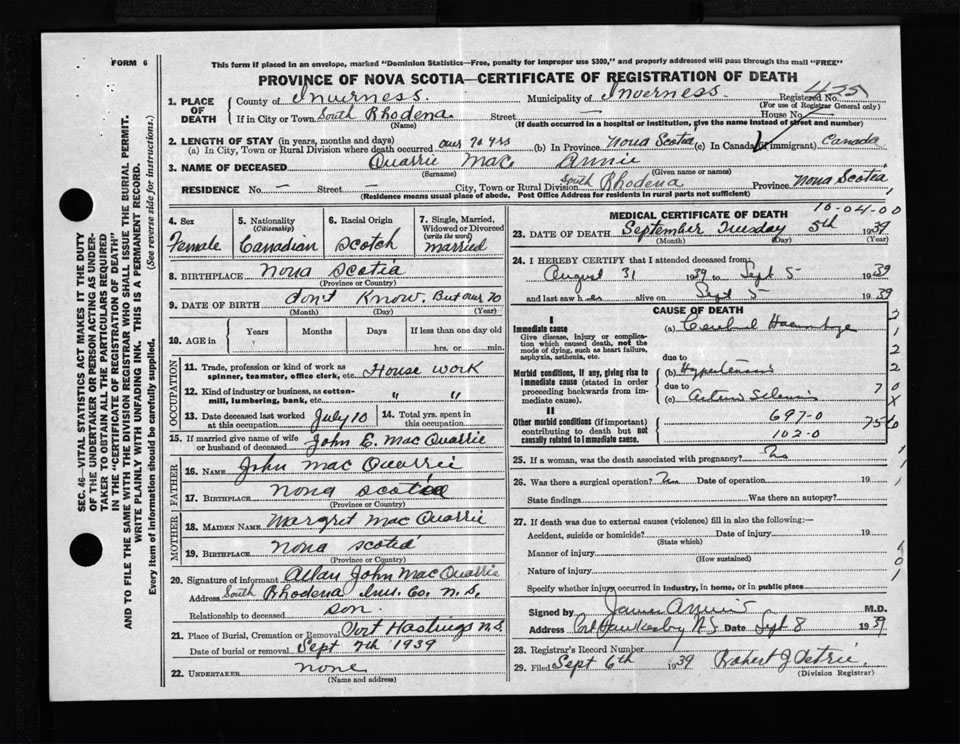 FORM 6
This form if placed in an envelope, marked "Dominion Statistics—Free, penalty for improper use $300," and properly addressed will pass through the mail "FREE"
PROVINCE OF NOVA SCOTIA—CERTIFICATE OF REGISTRATION OF DEATH
Registered No. 425
(For use of Registrar General only)
1. PLACE OF DEATH
County of Inverness. Municipality of Inverness.
If in City or Town South Rhodena Street House No.
(Name) (If death occurred in a hospital or institution, give the name instead of street and number)
2. LENGTH OF STAY (in years, months and days)
(a) In City, Town or Rural Division where death occurred our 70 yrs (b) In Province Nova Scotia (c) In Canada (if immigrant) Canada
3. NAME OF DECEASED Quarrie Mac Annie
(Surname) (Given name or names)
RESIDENCE No. — Street — City, Town or Rural Division South Rhodena Province Nova Scotia
(Residence means usual place of abode. Post Office Address for residents in rural parts not sufficient)
4. Sex
Female
5. Nationality
(Citizenship)
Canadian
6. Racial Origin
Scotch
7. Single, Married, Widowed or Divorced
(write the word)
married
8. BIRTHPLACE Nova Scotia
(Province or Country)
9. DATE OF BIRTH don't Know. But our 70
(Month) (Day) (Year)
10. AGE in
Years Months Days If less than one day old
hrs. or min.
OCCUPATION
11. Trade, profession or kind of work as spinner, teamster, office clerk, etc. House work
12. Kind of industry or business, as cotton-mill, lumbering, bank, etc. " "
13. Date deceased last worked at this occupation July 10
14. Total yrs. spent in this occupation
15. If married give name of wife or husband of deceased John E. Mac Quarrie
FATHER
16. NAME John Mac Quarrie
17. BIRTHPLACE Nova Scotia
(Province or Country)
MOTHER
18. MAIDEN NAME Margret Mac Quarrie
19. BIRTHPLACE Nova Scotia
(Province or Country)
20. Signature of informant Allan John Mac Quarrie
Address South Rhodena Inv. Co. N.S,
Relationship to deceased son.
21. Place of Burial, Cremation or Removal Port Hastings N.S
Date of burial or removal Sept 7th 1939
22. UNDERTAKER none
(Name and address)
MEDICAL CERTIFICATE OF DEATH
10-04-00
23. DATE OF DEATH September Tuesday 5th 1939
(Month) (Day) (Year)
24. I HEREBY CERTIFY that I attended deceased from
August 31 1939 to Sept 5 1939
and last saw her alive on Sept 5 1939
CAUSE OF DEATH
I
Immediate cause
Give disease, injury or complication which caused death, not the mode of dying, such as heart failure, asphyxia, asthenia, etc.
(a) Cerebral Haemorrhage
due to
Morbid conditions, if any, giving rise to immediate cause (stated in order proceeding backwards from immediate cause).
(b) Hypertension
due to
(c)
II
Other morbid conditions (if important) contributing to death but not causally related to immediate cause.
697-0
102-0
25. If a woman, was the death associated with pregnancy? No
26. Was there a surgical operation? No Date of operation 19
State findings Was there an autopsy?
27. If death was due to external causes (violence) fill in also the following:—
Accident, suicide or homicide? Date of injury 19
(State which)
Manner of injury
(How sustained)
Nature of injury
Specify whether injury occurred in industry, in home, or in public place
Signed by M.D.
Address Port Hawkesbury N.S Date Sept 8 1939
28. Registrar's Record Number
29. Filed Sept 6th 1939 Robert J Petrie
(Division Registrar)
SEC. 46—VITAL STATISTICS ACT MAKES IT THE DUTY
OF THE UNDERTAKER OR PERSON ACTING AS UNDER-
TAKER TO OBTAIN ALL THE PARTICULARS REQUIRED
IN THE "CERTIFICATE OF REGISTRATION OF DEATH"
AND TO FILE THE SAME WITH THE DIVISION REGISTRAR WHO SHALL ISSUE THE BURIAL PERMIT.
WRITE PLAINLY WITH UNFADING INK. THIS IS A PERMANENT RECORD.
Every item of information should be carefully supplied. (See reverse side for instructions.)